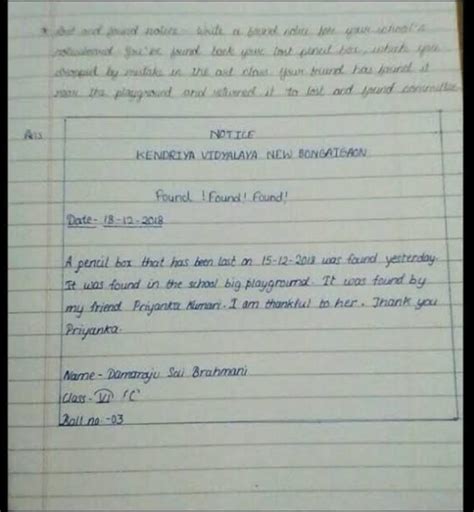 * Lost and found notice - Write a found notice for your school's
noticeboard you've found back your lost pencil box, which you
dropped by mistake in the art class. Your friend has found it
near the playground and returned it to lost and found committee.
Ans
NOTICE
KENDRIYA VIDYALAYA NEW BONGAIGAON
Found ! Found! Found!
Date- 18-12-2018
A pencil box that has been lost on 15-12-2018 was found yesterday.
It was found in the school big playground. It was found by
my friend Priyanka Kumari. I am thankful to her. Thank you
Priyanka.
Name - Damaraju Sai Brahmani
Class- VI 'C'
Roll no -03